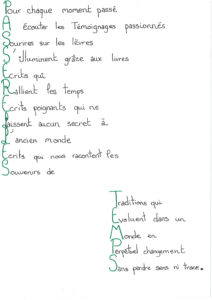 Pour chaque moment passé
A Ecouter les Témoignages passionnés
Sourires sur les lèvres
S'illuminent grâce aux livres
Ecrits qui
Rallient les temps
Ecrits poignants qui ne
Laissent aucun secret à
L'ancien monde
Ecrits qui nous racontent les
Souvenirs de
Traditions qui
Evoluent dans un
Monde en
Perpétuel changement
Sans perdre sens ni trace.